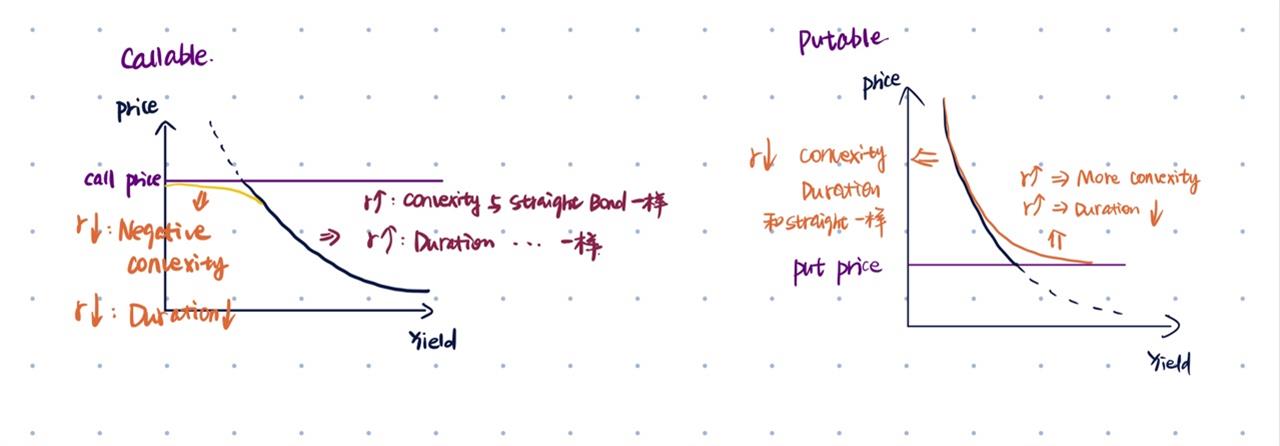 Callable.
Price
call price
r↓: Negative
convexity
r↓: Duration↓
r↑: convexity 与 straight Bond 一样
⇒ r↑: Duration ... 一样
Yield
Putable
price
r↓ convexity
Duration
和 straight 一样
put price
r↑ ⇒ More convexity
r↑ ⇒ Duration ↓
Yield